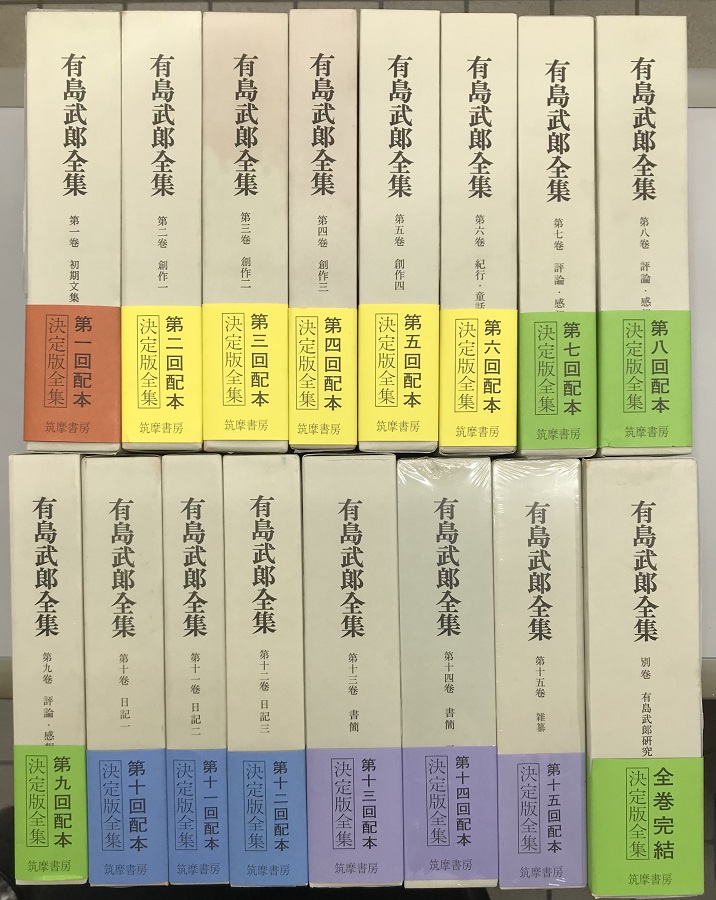 有島武郎全集
第一巻 初期文集
第一回配本
決定版全集
筑摩書房
有島武郎全集
第二巻 創作一
第二回配本
決定版全集
筑摩書房
有島武郎全集
第三巻 創作二
第三回配本
決定版全集
筑摩書房
有島武郎全集
第四巻 創作三
第四回配本
決定版全集
筑摩書房
有島武郎全集
第五巻 創作四
第五回配本
決定版全集
筑摩書房
有島武郎全集
第六巻 紀行・童話
第六回配本
決定版全集
筑摩書房
有島武郎全集
第七巻 評論・感想
第七回配本
決定版全集
筑摩書房
有島武郎全集
第八巻 評論・感想
第八回配本
決定版全集
筑摩書房
有島武郎全集
第九巻 評論・感想
第九回配本
決定版全集
筑摩書房
有島武郎全集
第十巻 日記一
第十回配本
決定版全集
筑摩書房
有島武郎全集
第十一巻 日記二
第十一回配本
決定版全集
筑摩書房
有島武郎全集
第十二巻 日記三
第十二回配本
決定版全集
筑摩書房
有島武郎全集
第十三巻 書簡
第十三回配本
決定版全集
筑摩書房
有島武郎全集
第十四巻 書簡
第十四回配本
決定版全集
筑摩書房
有島武郎全集
第十五巻 雑纂
第十五回配本
決定版全集
筑摩書房
有島武郎全集
別巻 有島武郎研究
全巻完結
決定版全集
筑摩書房